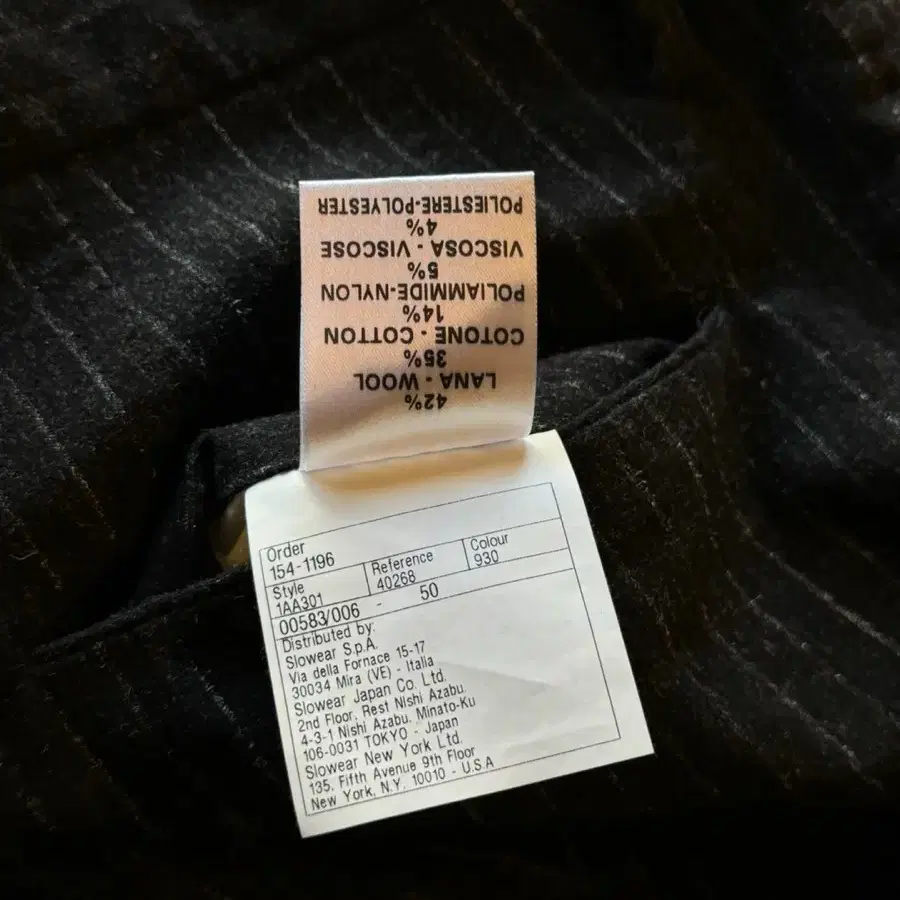 42%
LANA - WOOL
35%
COTONE - COTTON
14%
POLIAMMIDE-NYLON
5%
VISCOSA - VISCOSE
4%
POLIESTERE-POLYESTER
Order
154-1196
Style
1AA301
Reference
40268
Colour
930
00583/006 - 50
Distributed by:
Slowear S.p.A.
Via della Fornace 15-17
30034 Mira (VE) - Italia
Slowear Japan Co. Ltd.
2nd Floor, Rest Nishi Azabu,
4-3-1 Nishi Azabu, Minato-Ku
106-0031 TOKYO - Japan
Slowear New York Ltd.
135, Fifth Avenue 9th Floor
New York, N.Y. 10010 - U.S.A